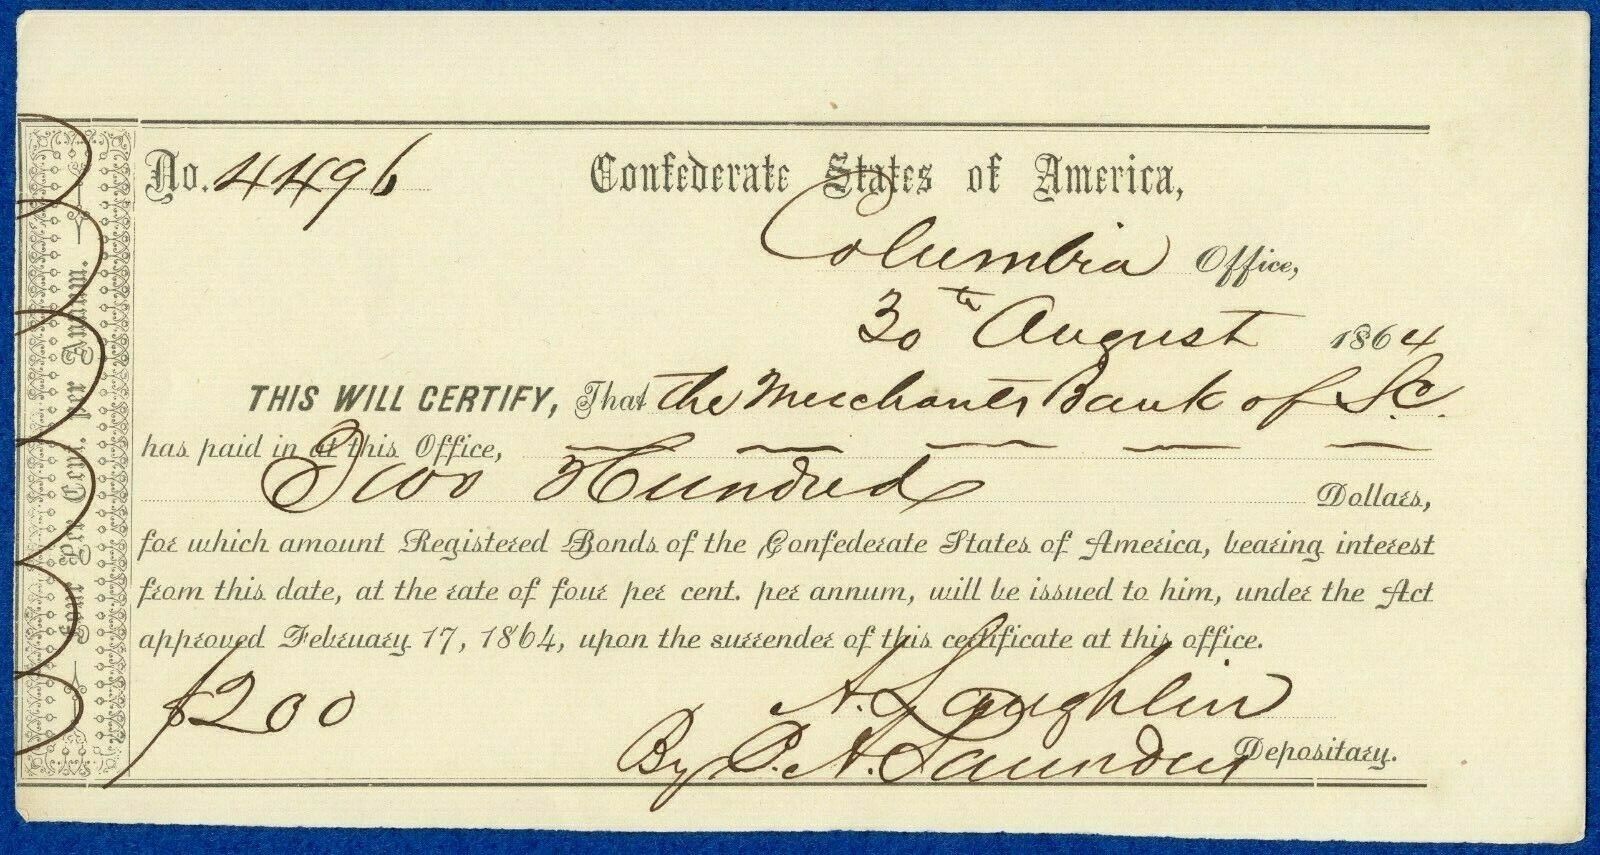 No. 4496 Confederate States of America,
Columbia Office,
30th August 1864
THIS WILL CERTIFY, That the Merchants Bank of S.C.
has paid in at this Office,
Two Hundred Dollars,
for which amount Registered Bonds of the Confederate States of America, bearing interest
from this date, at the rate of four per cent. per annum, will be issued to him, under the Act
approved February 17, 1864, upon the surrender of this certificate at this office.
$200 A. Laughlin
By C. A. Saunders Depositary.
Four Per Cent. per Annum.